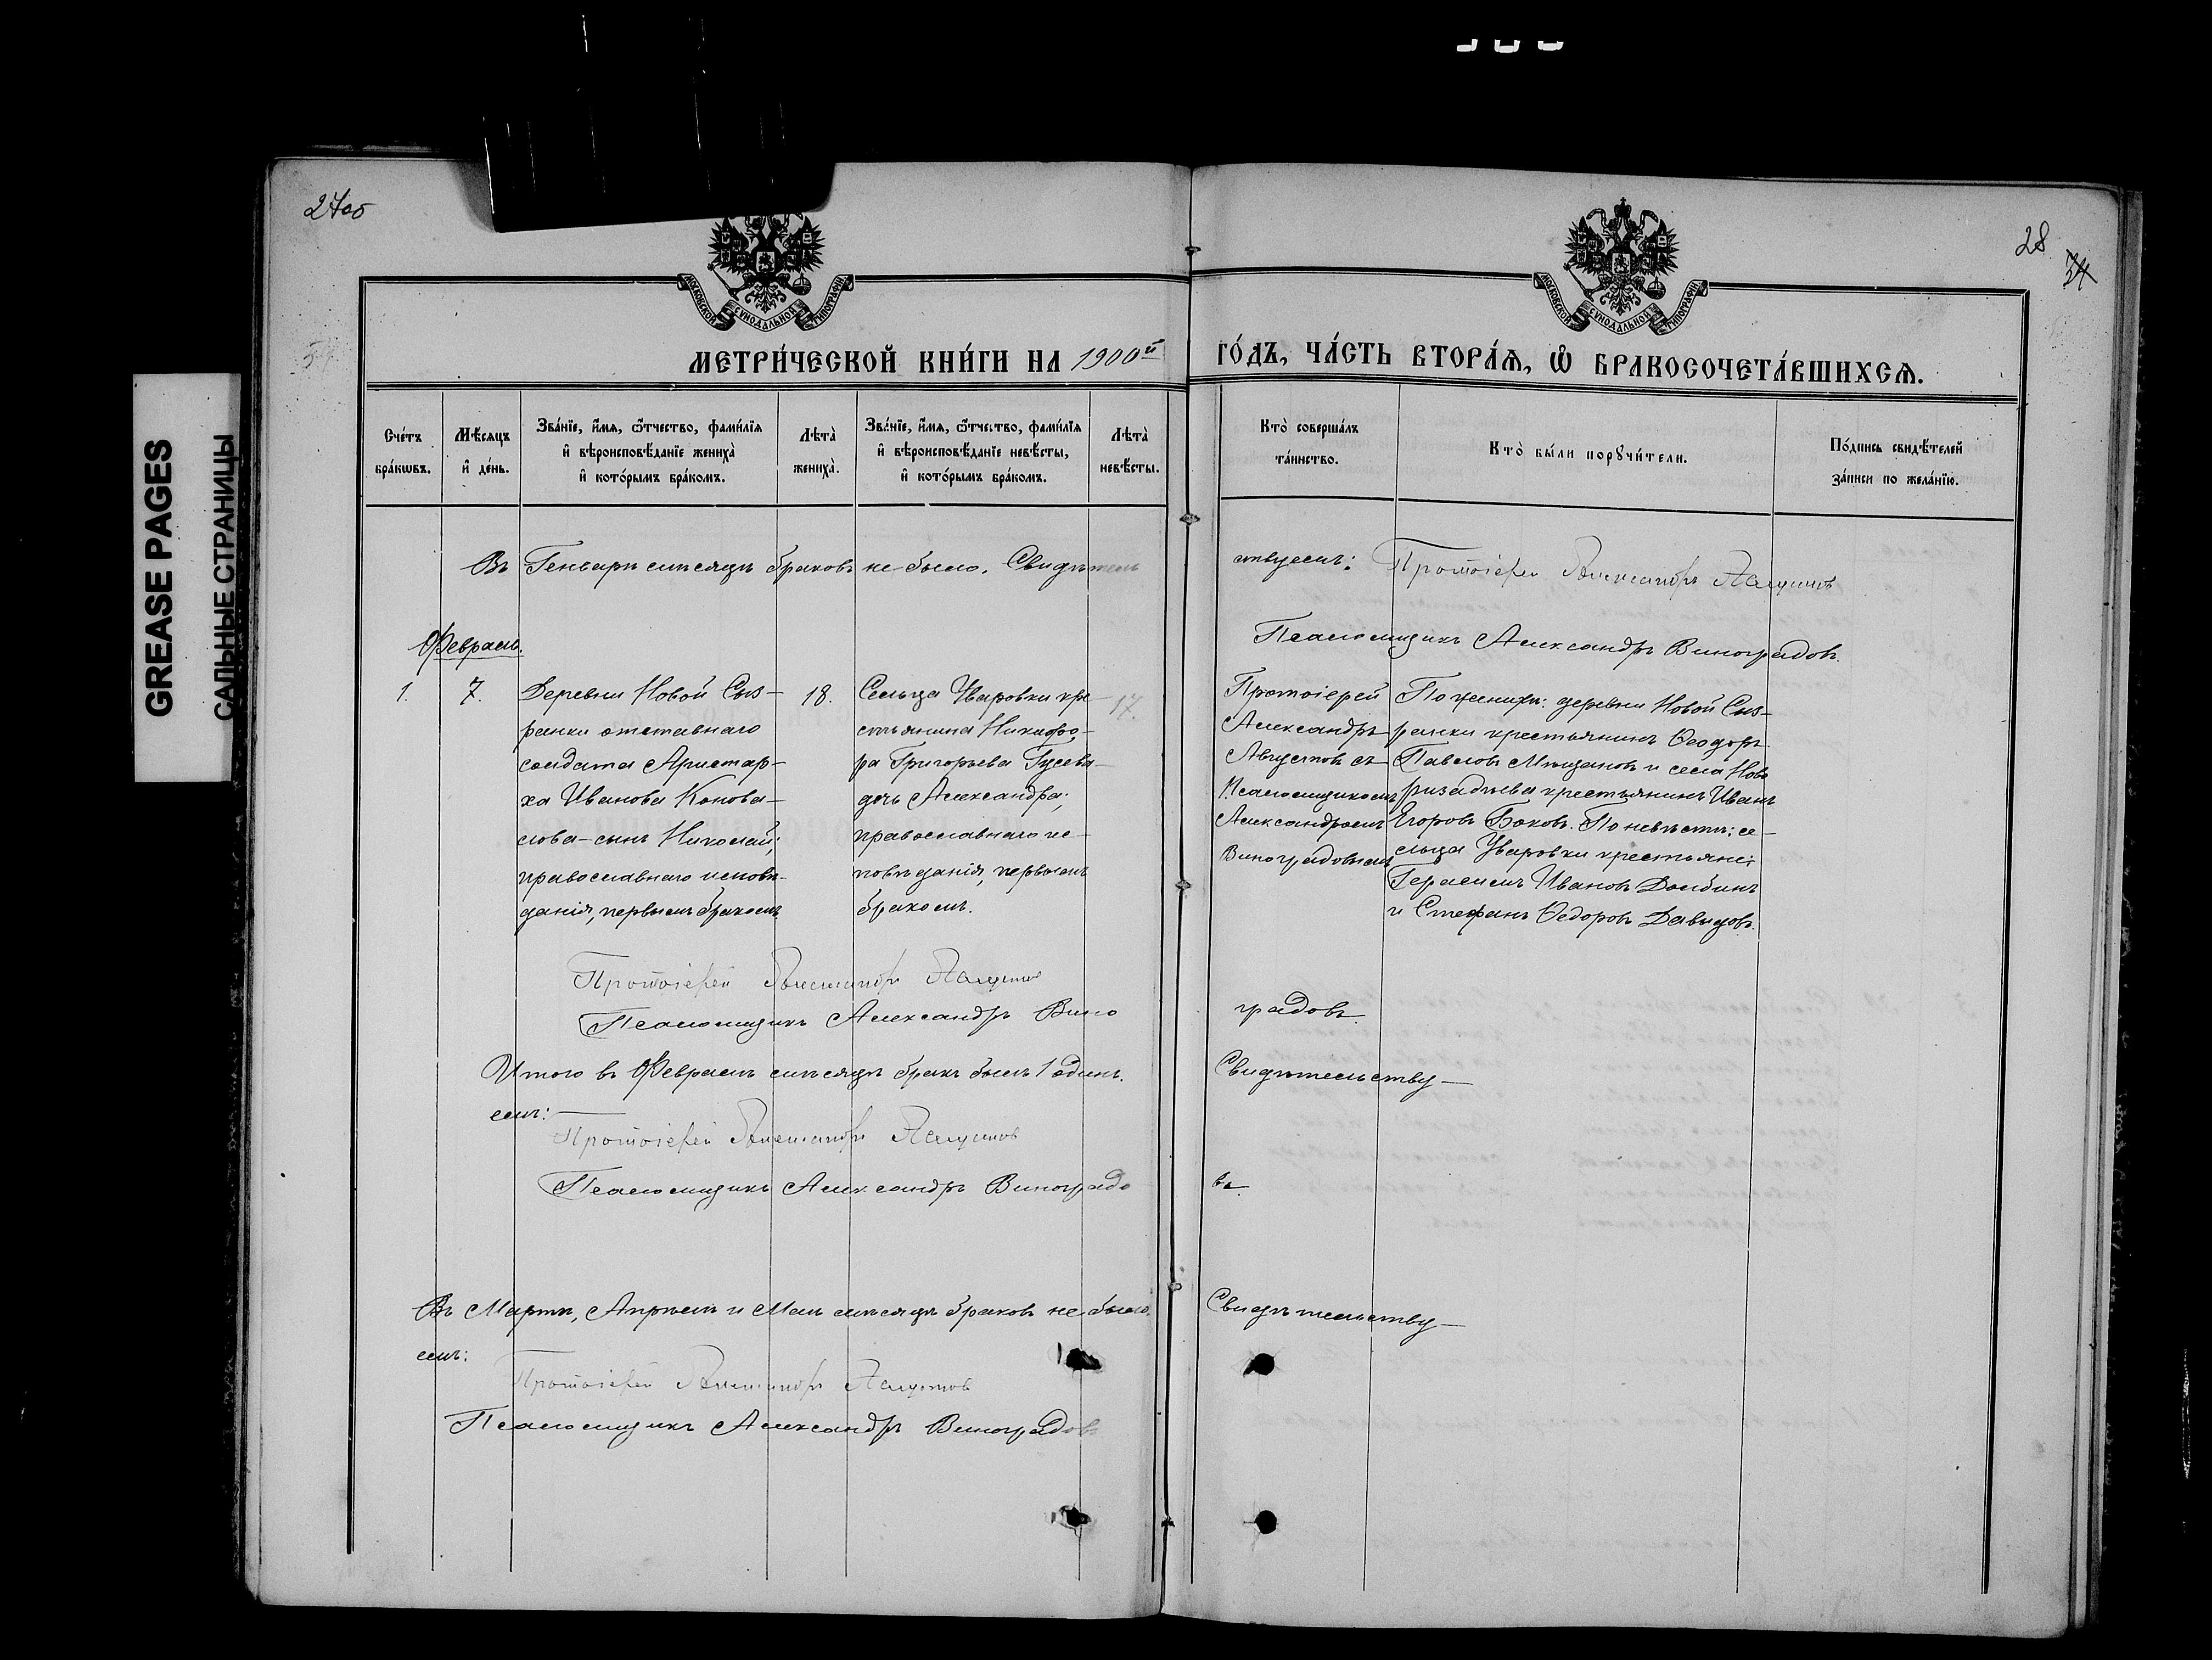 27об
28
34
GREASE PAGES
САЛЬНЫЕ СТРАНИЦЫ
МОСКОВСКОЙ СѴНОДАЛЬНОЙ ТИПОГРАФІИ
МОСКОВСКОЙ СѴНОДАЛЬНОЙ ТИПОГРАФІИ
МЕТРИ́ЧЕСКОЙ КНИ́ГИ НА 1900й
ГО́ДЪ, ЧА́СТЬ ВТОРА́Я, Ѡ БРАКОСОЧЕТА́ВШИХСѦ.
Сче́тъ
бра́кѡвъ.
Мѣ́сяцъ
и де́нь.
Зва́нїе, и́мѧ, ѻ҆́тчество, фами́лїѧ
и҆ вѣроисповѣ́данїе жениха̀
и҆ кото́рымъ бра́комъ.
Лѣта̀
жениха̀.
Зва́нїе, и́мѧ, ѻ҆́тчество, фами́лїѧ
и҆ вѣроисповѣ́данїе невѣ́сты,
и҆ кото́рымъ бра́комъ.
Лѣта̀
невѣ́сты.
Кто̀ соверша́лъ
та́инство.
Кто̀ бы́ли порꙋчи́тели.
По́дпись свидѣ́телей
за́писи по жела́нїю.
Въ Генварѣ мѣсяцѣ браковъ не было. Свидѣтель
ствуемъ: Протоіерей Александръ Августовъ
Псаломщикъ Александръ Виноградовъ.
Февраль.
1.
7.
Деревни Новой Сыз-
ранки отставнаго
солдата Аристар-
ха Иванова Конова-
лова-сынъ Николай;
православнаго исповѣ-
данія, первымъ бракомъ
18.
Сельца Уваровки кре-
стьянина Никифо-
ра Григорьева Гусева
дочь Александра;
православнаго ис-
повѣданія, первымъ
бракомъ.
17.
Протоіерей
Александръ
Августовъ съ
Псаломщикомъ
Александромъ
Виноградовымъ
По женихѣ: деревни Новой Сыз-
ранки крестьянинъ Ѳеодоръ
Павловъ Мѣщановъ и села Ново
ризадѣева крестьянинъ Иванъ
Егоровъ Боковъ. По невѣстѣ: се-
сльца Уваровки крестьяне:
Герасимъ Ивановъ Долбинъ
и Стефанъ Ѳедоровъ Давыдовъ.
Протоіерей Александръ Августовъ
Псаломщикъ Александръ Вино
градовъ.
Итого въ Февралѣ мѣсяцѣ бракъ былъ 1 одинъ.
Свидѣтельству-
емъ:
Протоіерей Александръ Августовъ
Псаломщикъ Александръ Виноградо
въ.
Въ Мартѣ, Апрѣлѣ и Маѣ мѣсяцѣ браковъ не было.
Свидѣтельству-
емъ:
Протоіерей Александръ Августовъ
Псаломщикъ Александръ Виноградовъ